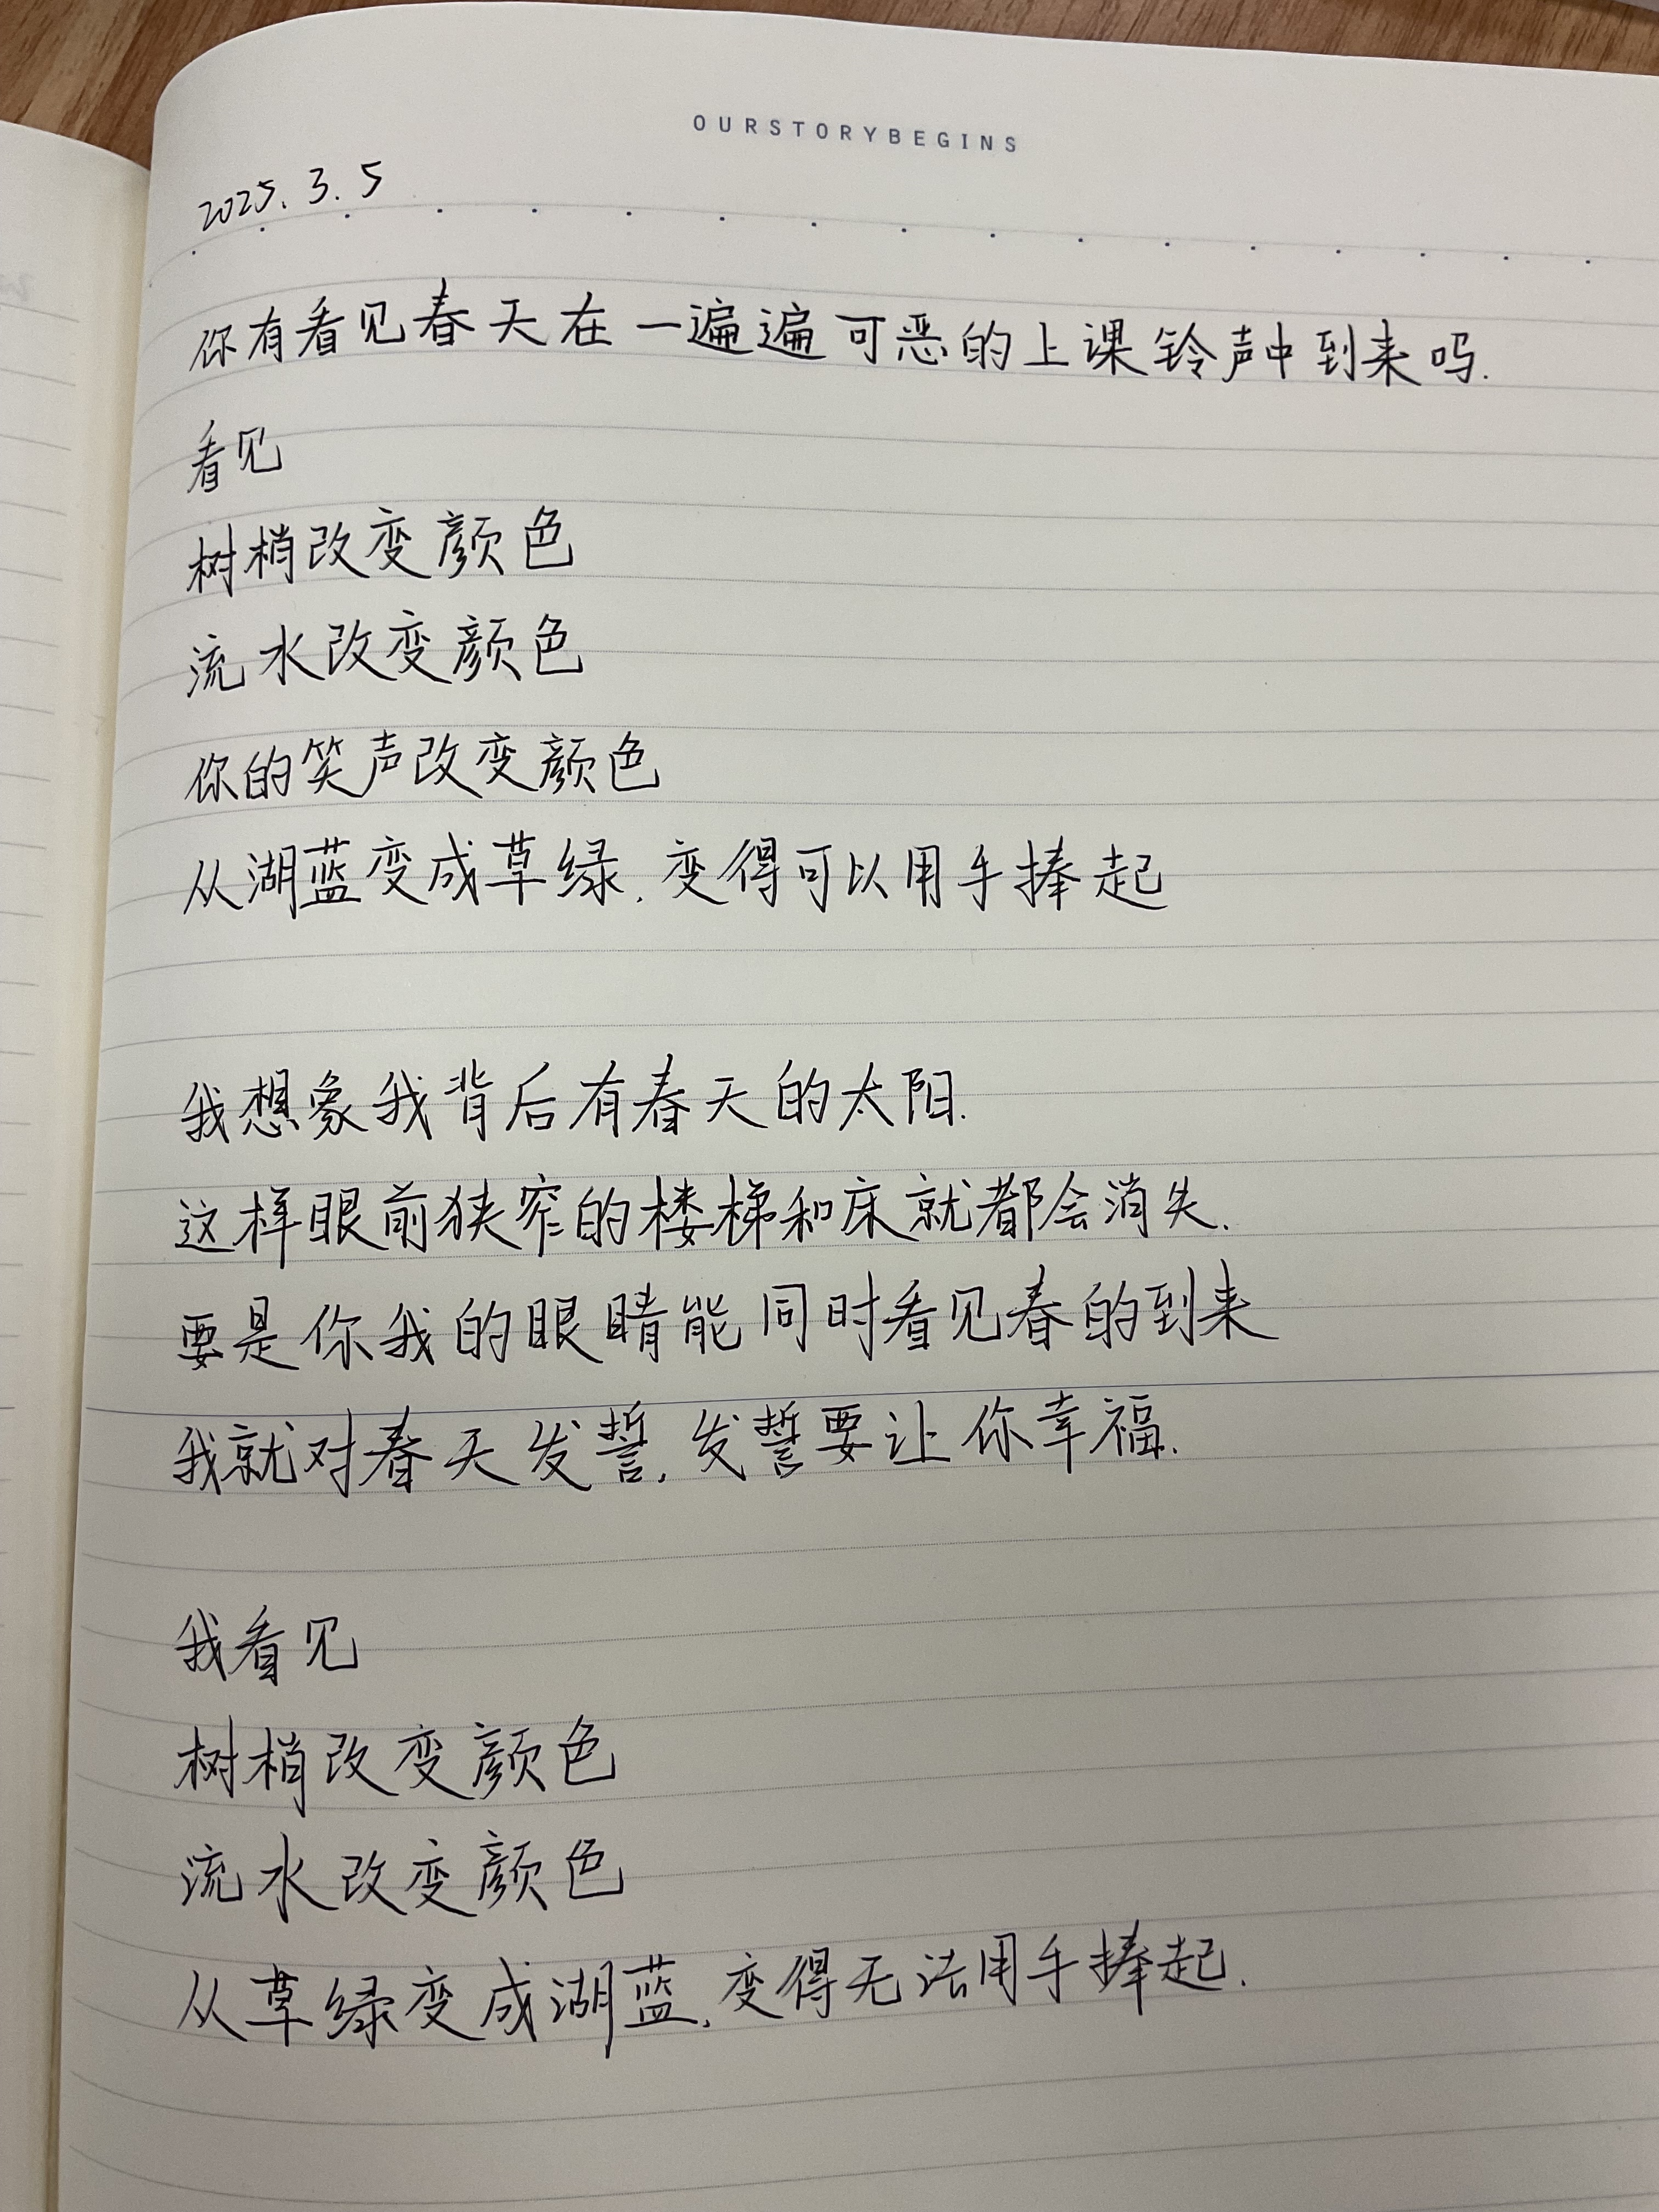 OURSTORYBEGINS
2025.3.5
你有看见春天在一遍遍可恶的上课铃声中到来吗.
看见
树梢改变颜色
流水改变颜色
你的笑声改变颜色
从湖蓝变成草绿.变得可以用手捧起
我想象我背后有春天的太阳.
这样眼前狭窄的楼梯和床就都会消失.
要是你我的眼睛能同时看见春的到来
我就对春天发誓.发誓要让你幸福.
我看见
树梢改变颜色
流水改变颜色
从草绿变成湖蓝.变得无法用手捧起.